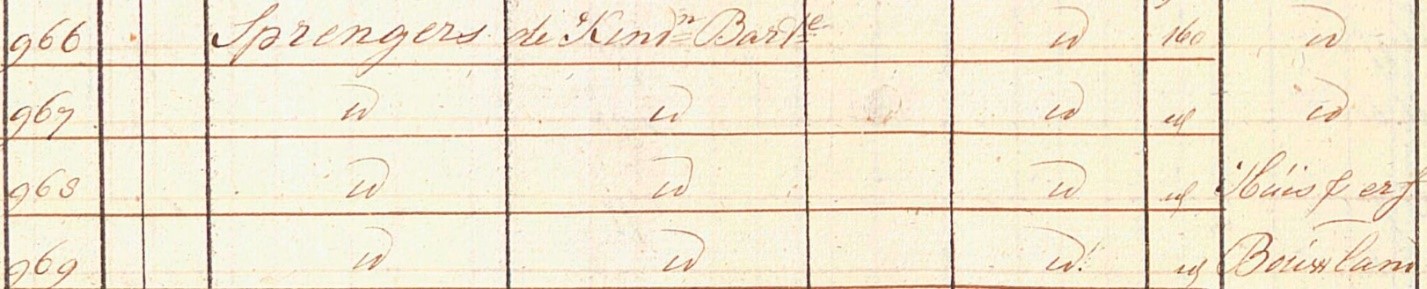 966 Sprengers de Kindn Barte id 160 id
967 id id id id id
968 id id id id Huis & erf
969 id id id id Bouwland